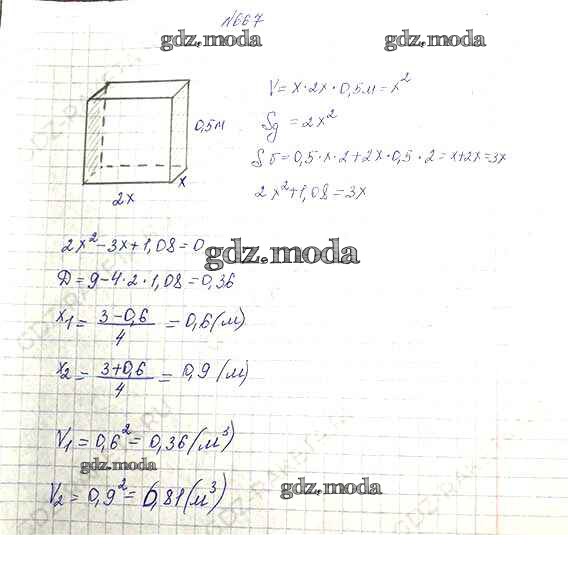 №667
gdz.moda
gdz.moda
V = x·2x·0,5м = x²
0,5м
Sд = 2x²
x
2x
Sб = 0,5·x·2+2x·0,5·2 = x+2x = 3x
2x²+1,08 = 3x
2x²−3x+1,08=0
gdz.moda
D = 9−4·2·1,08 = 0,36
x₁ = (3−0,6)/4 = 0,6 (м)
x₂ = (3+0,6)/4 = 0,9 (м)
V₁ = 0,6² = 0,36 (м³)
gdz.moda
V₂ = 0,9² = 0,81 (м³)
gdz.moda